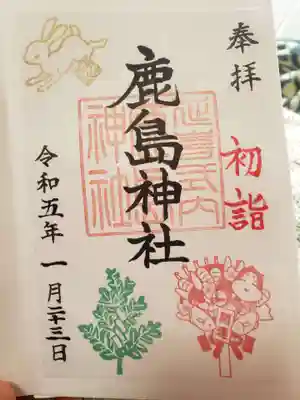 奉拝
初詣
鹿島神社
延喜式内
神社
令和五年一月二十三日